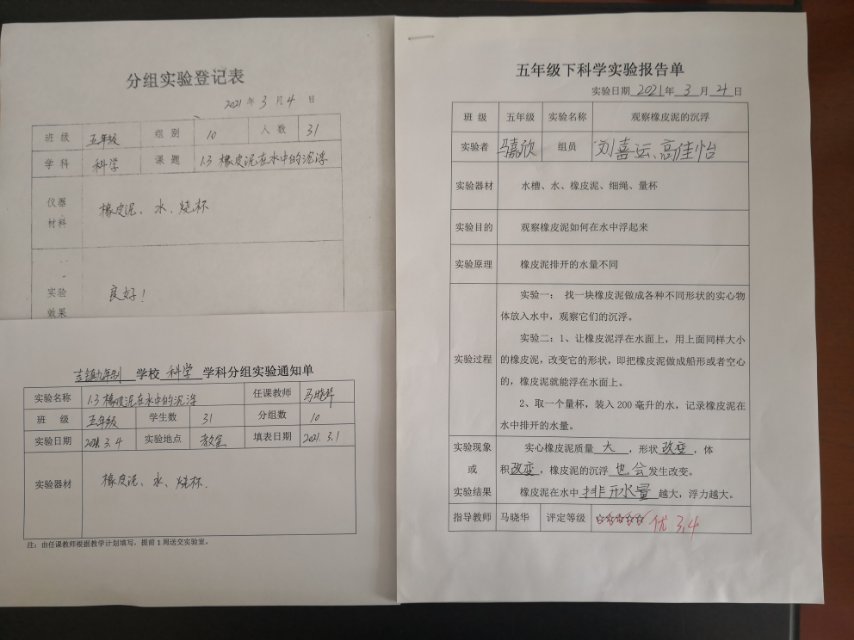 分组实验登记表
2021 年 3 月 4 日
班 级 五年级 组 别 10 人 数 31
学 科 科学 课 题 1.3 橡皮泥在水中的沉浮
仪器
材料 橡皮泥、水、烧杯
实验
效果 良好！
学校 科学 学科分组实验通知单
实验名称 1.3 橡皮泥在水中的沉浮 任课教师 马晓华
班 级 五年级 学生数 31 分组数 10
实验日期 2021.3.4 实验地点 教室 填表日期 2021.3.1
实验器材 橡皮泥、水、烧杯.
注：由任课教师根据教学计划填写，提前1周送交实验室。
五年级下科学实验报告单
实验日期 2021 年 3 月 4 日
班 级 五年级 实验名称 观察橡皮泥的沉浮
实验者 组员 刘喜运、高佳怡
实验器材 水槽、水、橡皮泥、细绳、量杯
实验目的 观察橡皮泥如何在水中浮起来
实验原理 橡皮泥排开的水量不同
实验过程
实验一： 找一块橡皮泥做成各种不同形状的实心物
体放入水中，观察它们的沉浮。
实验二：1、让橡皮泥浮在水面上，用上面同样大小
的橡皮泥，改变它的形状，即把橡皮泥做成船形或者空心
的，橡皮泥就能浮在水面上。
2、取一个量杯，装入 200 毫升的水，记录橡皮泥在
水中排开的水量。
实验现象
或
实验结果
实心橡皮泥质量 大 ，形状 改变 ，体
积 改变 ，橡皮泥的沉浮 也会 发生改变。
橡皮泥在水中 排开水量 越大，浮力越大。
指导教师 马晓华 评定等级 优 3.4